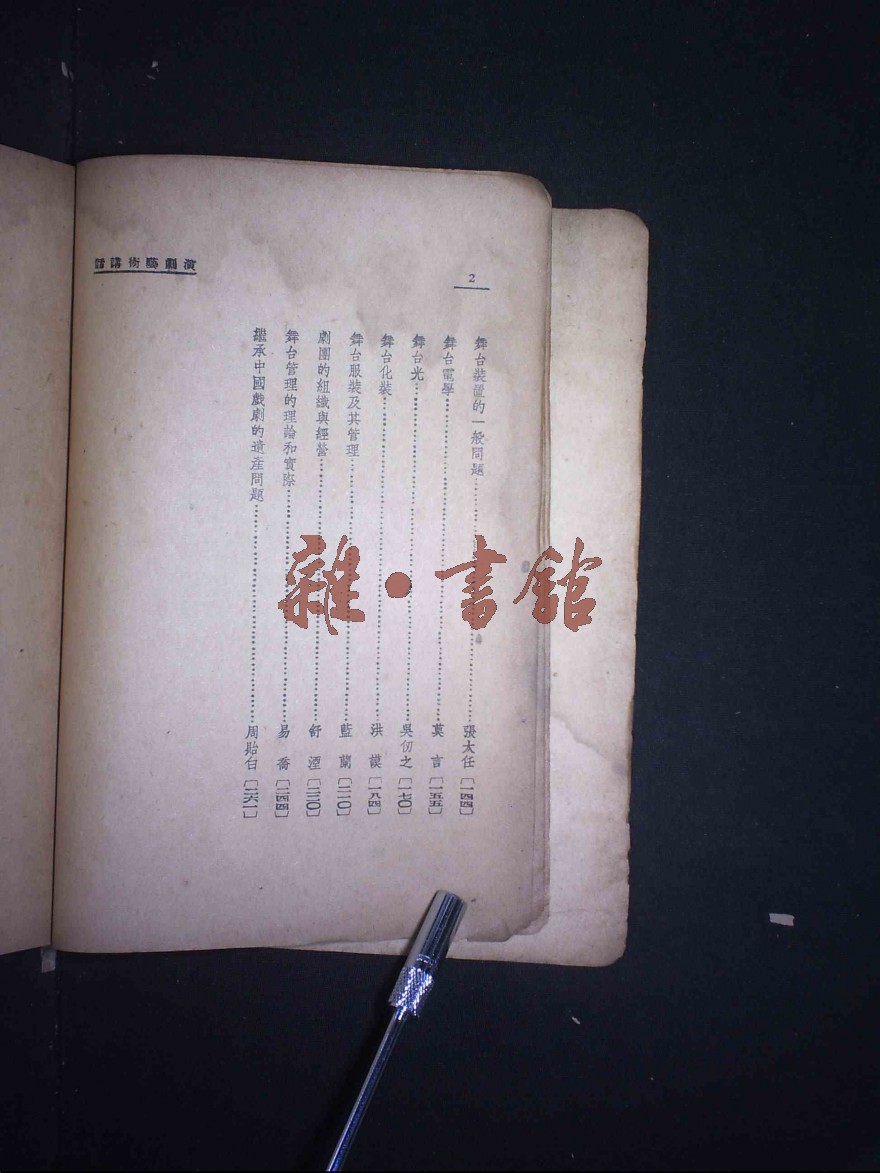 演劇藝術講話
2
舞台裝置的一般問題……張大任〔一四四〕
舞台電學……莫言〔一五五〕
舞台光……吳仞之〔一七〇〕
舞台化裝……洪謨〔一八四〕
舞台服裝及其管理……藍蘭〔二一〇〕
劇團的組織與經營……舒湮〔二三〇〕
舞台管理的理論和實際……易喬〔二四四〕
繼承中國戲劇的遺產問題……周貽白〔二六一〕
雜·書館